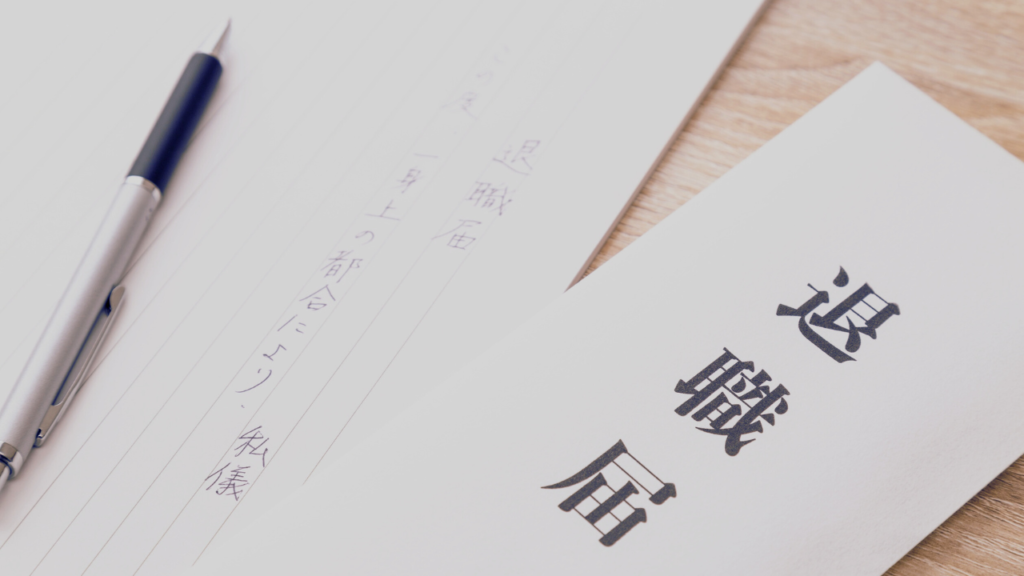 退職届
私儀
この度 一身上の都合により、
退職届